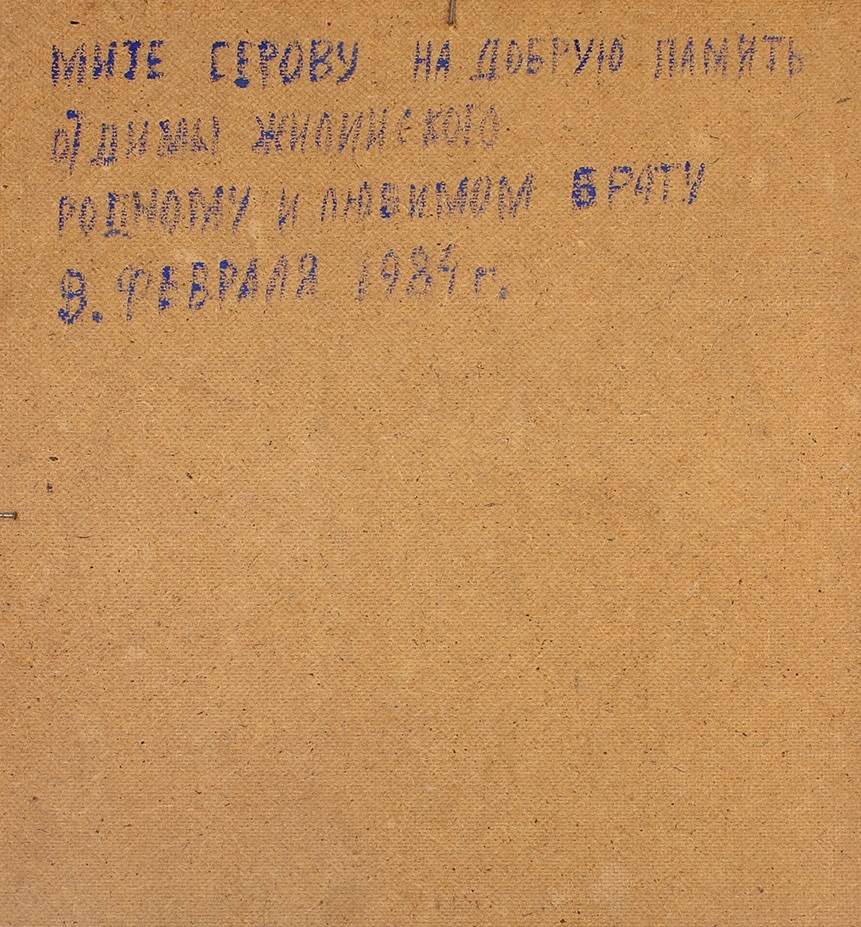 МИТЕ СЕРОВУ НА ДОБРУЮ ПАМЯТЬ
ОТ ДИМЫ ЖИЛИНСКОГО
РОДНОМУ И ЛЮБИМОМУ БРАТУ
8. ФЕВРАЛЯ 1984 г.